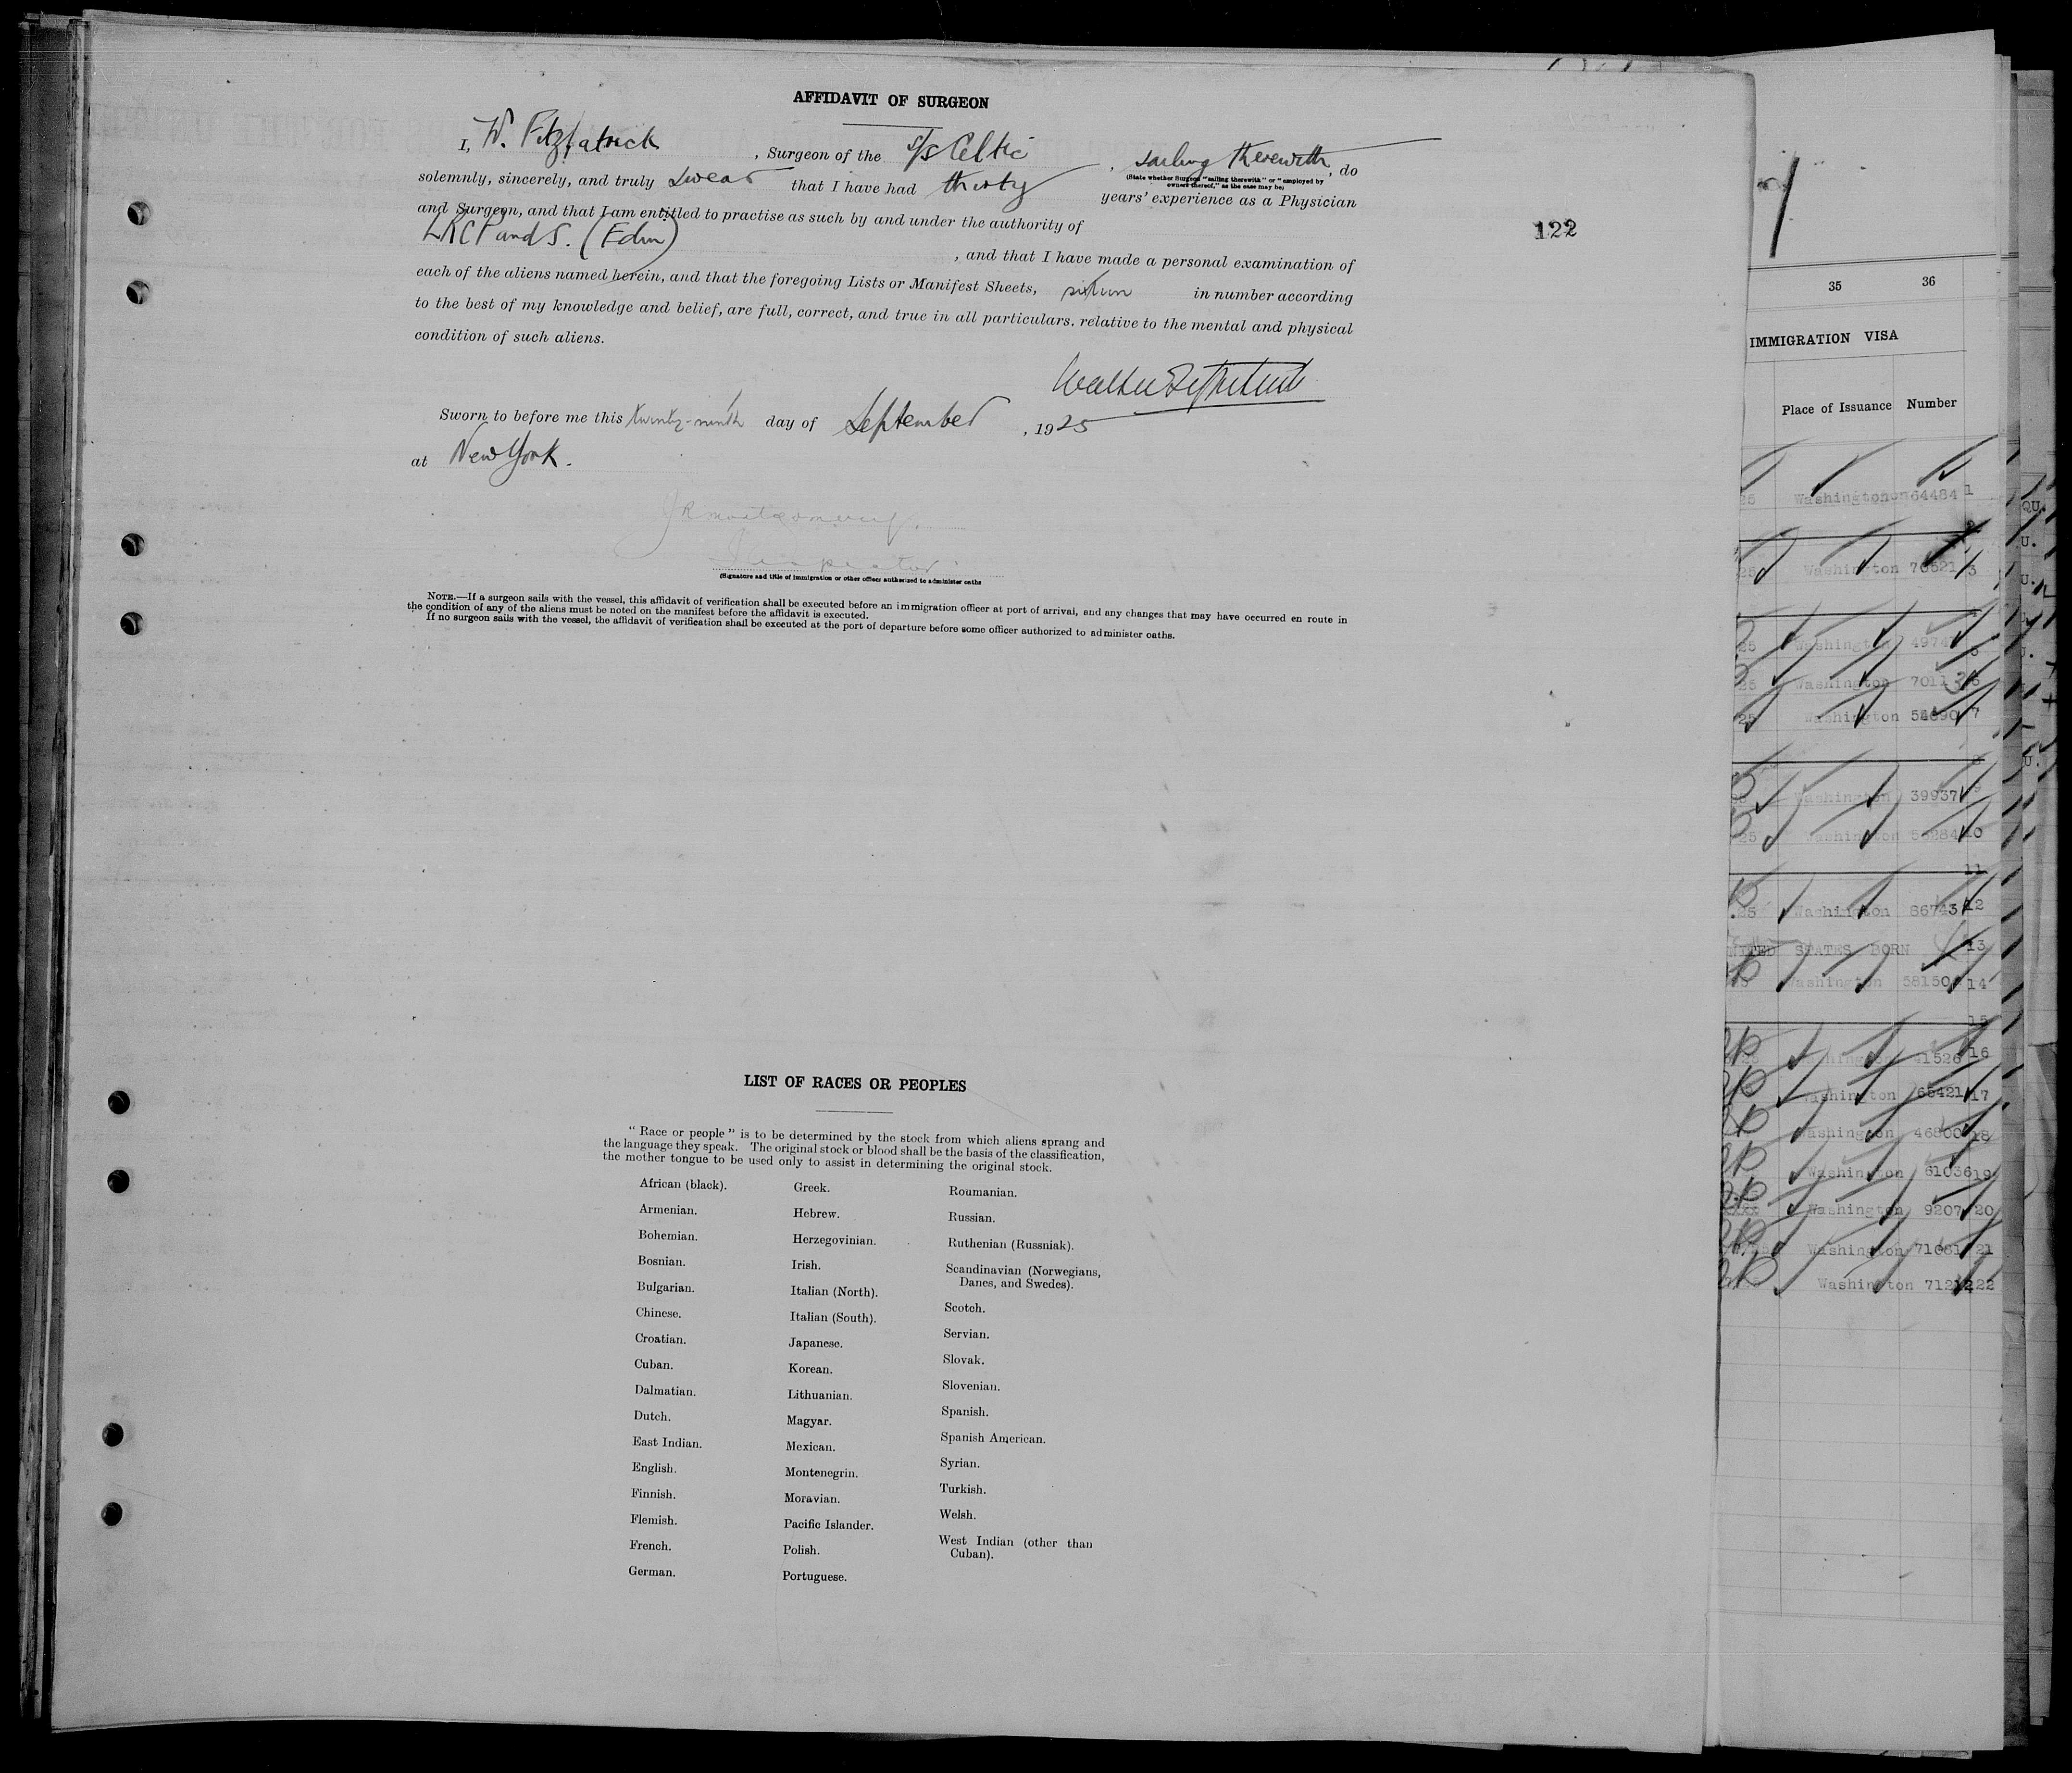 AFFIDAVIT OF SURGEON
I, W. Fitzpatrick, Surgeon of the s/s Celtic, sailing therewith, do
(State whether Surgeon "sailing therewith" or "employed by
owners thereof," as the case may be)
solemnly, sincerely, and truly swear that I have had thirty years' experience as a Physician
and Surgeon, and that I am entitled to practise as such by and under the authority of
LRCP and S. (Edin), and that I have made a personal examination of
each of the aliens named herein, and that the foregoing Lists or Manifest Sheets, sixteen in number according
to the best of my knowledge and belief, are full, correct, and true in all particulars. relative to the mental and physical
condition of such aliens.
Walter Fitzpatrick
Sworn to before me this twenty-ninth day of September, 1925
at New York.
JR Montgomery.
Inspector
(Signature and title of immigration or other officer authorized to administer oaths
NOTE.—If a surgeon sails with the vessel, this affidavit of verification shall be executed before an immigration officer at port of arrival, and any changes that may have occurred en route in
the condition of any of the aliens must be noted on the manifest before the affidavit is executed.
If no surgeon sails with the vessel, the affidavit of verification shall be executed at the port of departure before some officer authorized to administer oaths.
122
LIST OF RACES OR PEOPLES
" Race or people " is to be determined by the stock from which aliens sprang and
the language they speak. The original stock or blood shall be the basis of the classification,
the mother tongue to be used only to assist in determining the original stock.
African (black).
Armenian.
Bohemian.
Bosnian.
Bulgarian.
Chinese.
Croatian.
Cuban.
Dalmatian.
Dutch.
East Indian.
English.
Finnish.
Flemish.
French.
German.
Greek.
Hebrew.
Herzegovinian.
Irish.
Italian (North).
Italian (South).
Japanese.
Korean.
Lithuanian.
Magyar.
Mexican.
Montenegrin.
Moravian.
Pacific Islander.
Polish.
Portuguese.
Roumanian.
Russian.
Ruthenian (Russniak).
Scandinavian (Norwegians,
Danes, and Swedes).
Scotch.
Servian.
Slovak.
Slovenian.
Spanish.
Spanish American.
Syrian.
Turkish.
Welsh.
West Indian (other than
Cuban).
35 36
IMMIGRATION VISA
Place of Issuance Number
25 Washington 64484 1
25 Washington 70521 3
25 Washington 4974 5
25 Washington 70113 6
25 Washington 7
8
Washington 39937 9
25 Washington 10
11
25 Washington 86743 12
STATES BORN 13
Washington 58150 14
15
Washington 41526 16
Washington 65421 17
Washington 46800 18
Washington 61036 19
Washington 9207 20
Washington 71081 21
Washington 22